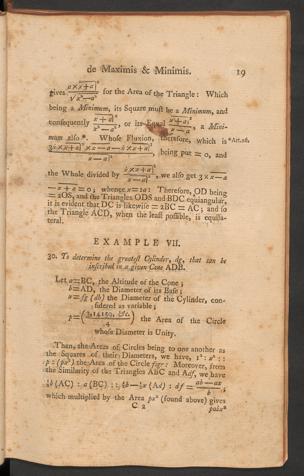 de Maximis & Minimis. 19
gives x × x+a|² / √x²−a² for the Area of the Triangle: Which
being a Minimum, its Square must be a Minimum, and
consequently or its Equal a Mini-
mum also*. Whose Fluxion, therefore, which is *Art.
being put = 0, and
the Whole divided by we also get 3 × x − a
− x + a = 0; whence x = 2a: Therefore, OD being
= 2OS, and the Triangles ODS and BDC equiangular,
it is evident that DC is likewise = 2BC = AC; and so
the Triangle ACD, when the least possible, is equila-
teral.
EXAMPLE VII.
30. To determine the greatest Cylinder, dg, that can be
inscribed in a given Cone ADB.
Let a = BC, the Altitude of the Cone;
b = AD, the Diameter of its Base;
x = fg (dh) the Diameter of the Cylinder, con-
sidered as variable;
the Area of the Circle
whose Diameter is Unity.
Then, the Areas of Circles being to one another as
the Squares of their Diameters, we have, 1² : x² ::
p : (px²) the Area of the Circle Moreover, from
the Similarity of the Triangles ABC and Adf, we have
½b (AC) : a (BC) :: ½b − ½x (Ad) : df = ab − ax / b;
which multiplied by the Area px² (found above) gives
C 2